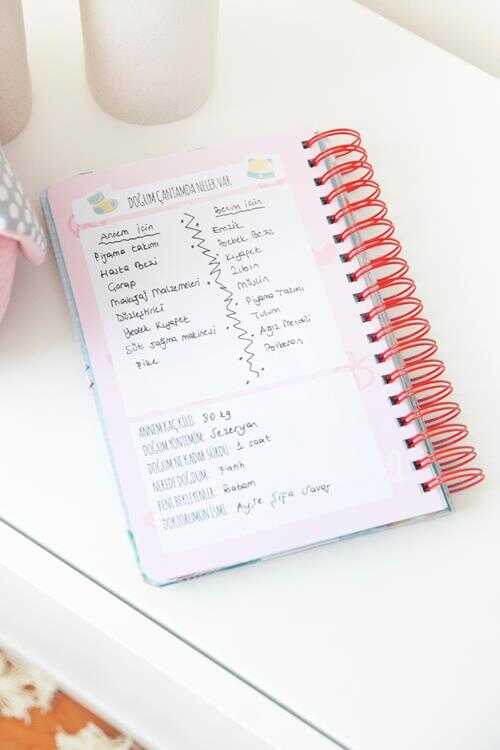 DOĞUM ÇANTAMDA NELER VAR
Annem için
Pijama takımı
Hasta Bezi
Çorap
Makyaj Malzemeleri
Düzleştirici
Yedek Kıyafet
Süt sağma makinesi
Pike
Benim için
Emzik
Bebek Bezi
Kıyafet
Zıbın
Müslin
Pijama Takımı
Tulum
Ağız Mendili
Biberon
ANNEM KAÇ KİLO: 80 kg
DOĞUM YÖNTEMİM: Sezeryan
DOĞUM NE KADAR SÜRDÜ: 1 saat
NEREDE DOĞDUM: Fatih
BENİ BEKLEYENLER: Babam
DOKTORUMUN İSMİ: Ayşe Şifa